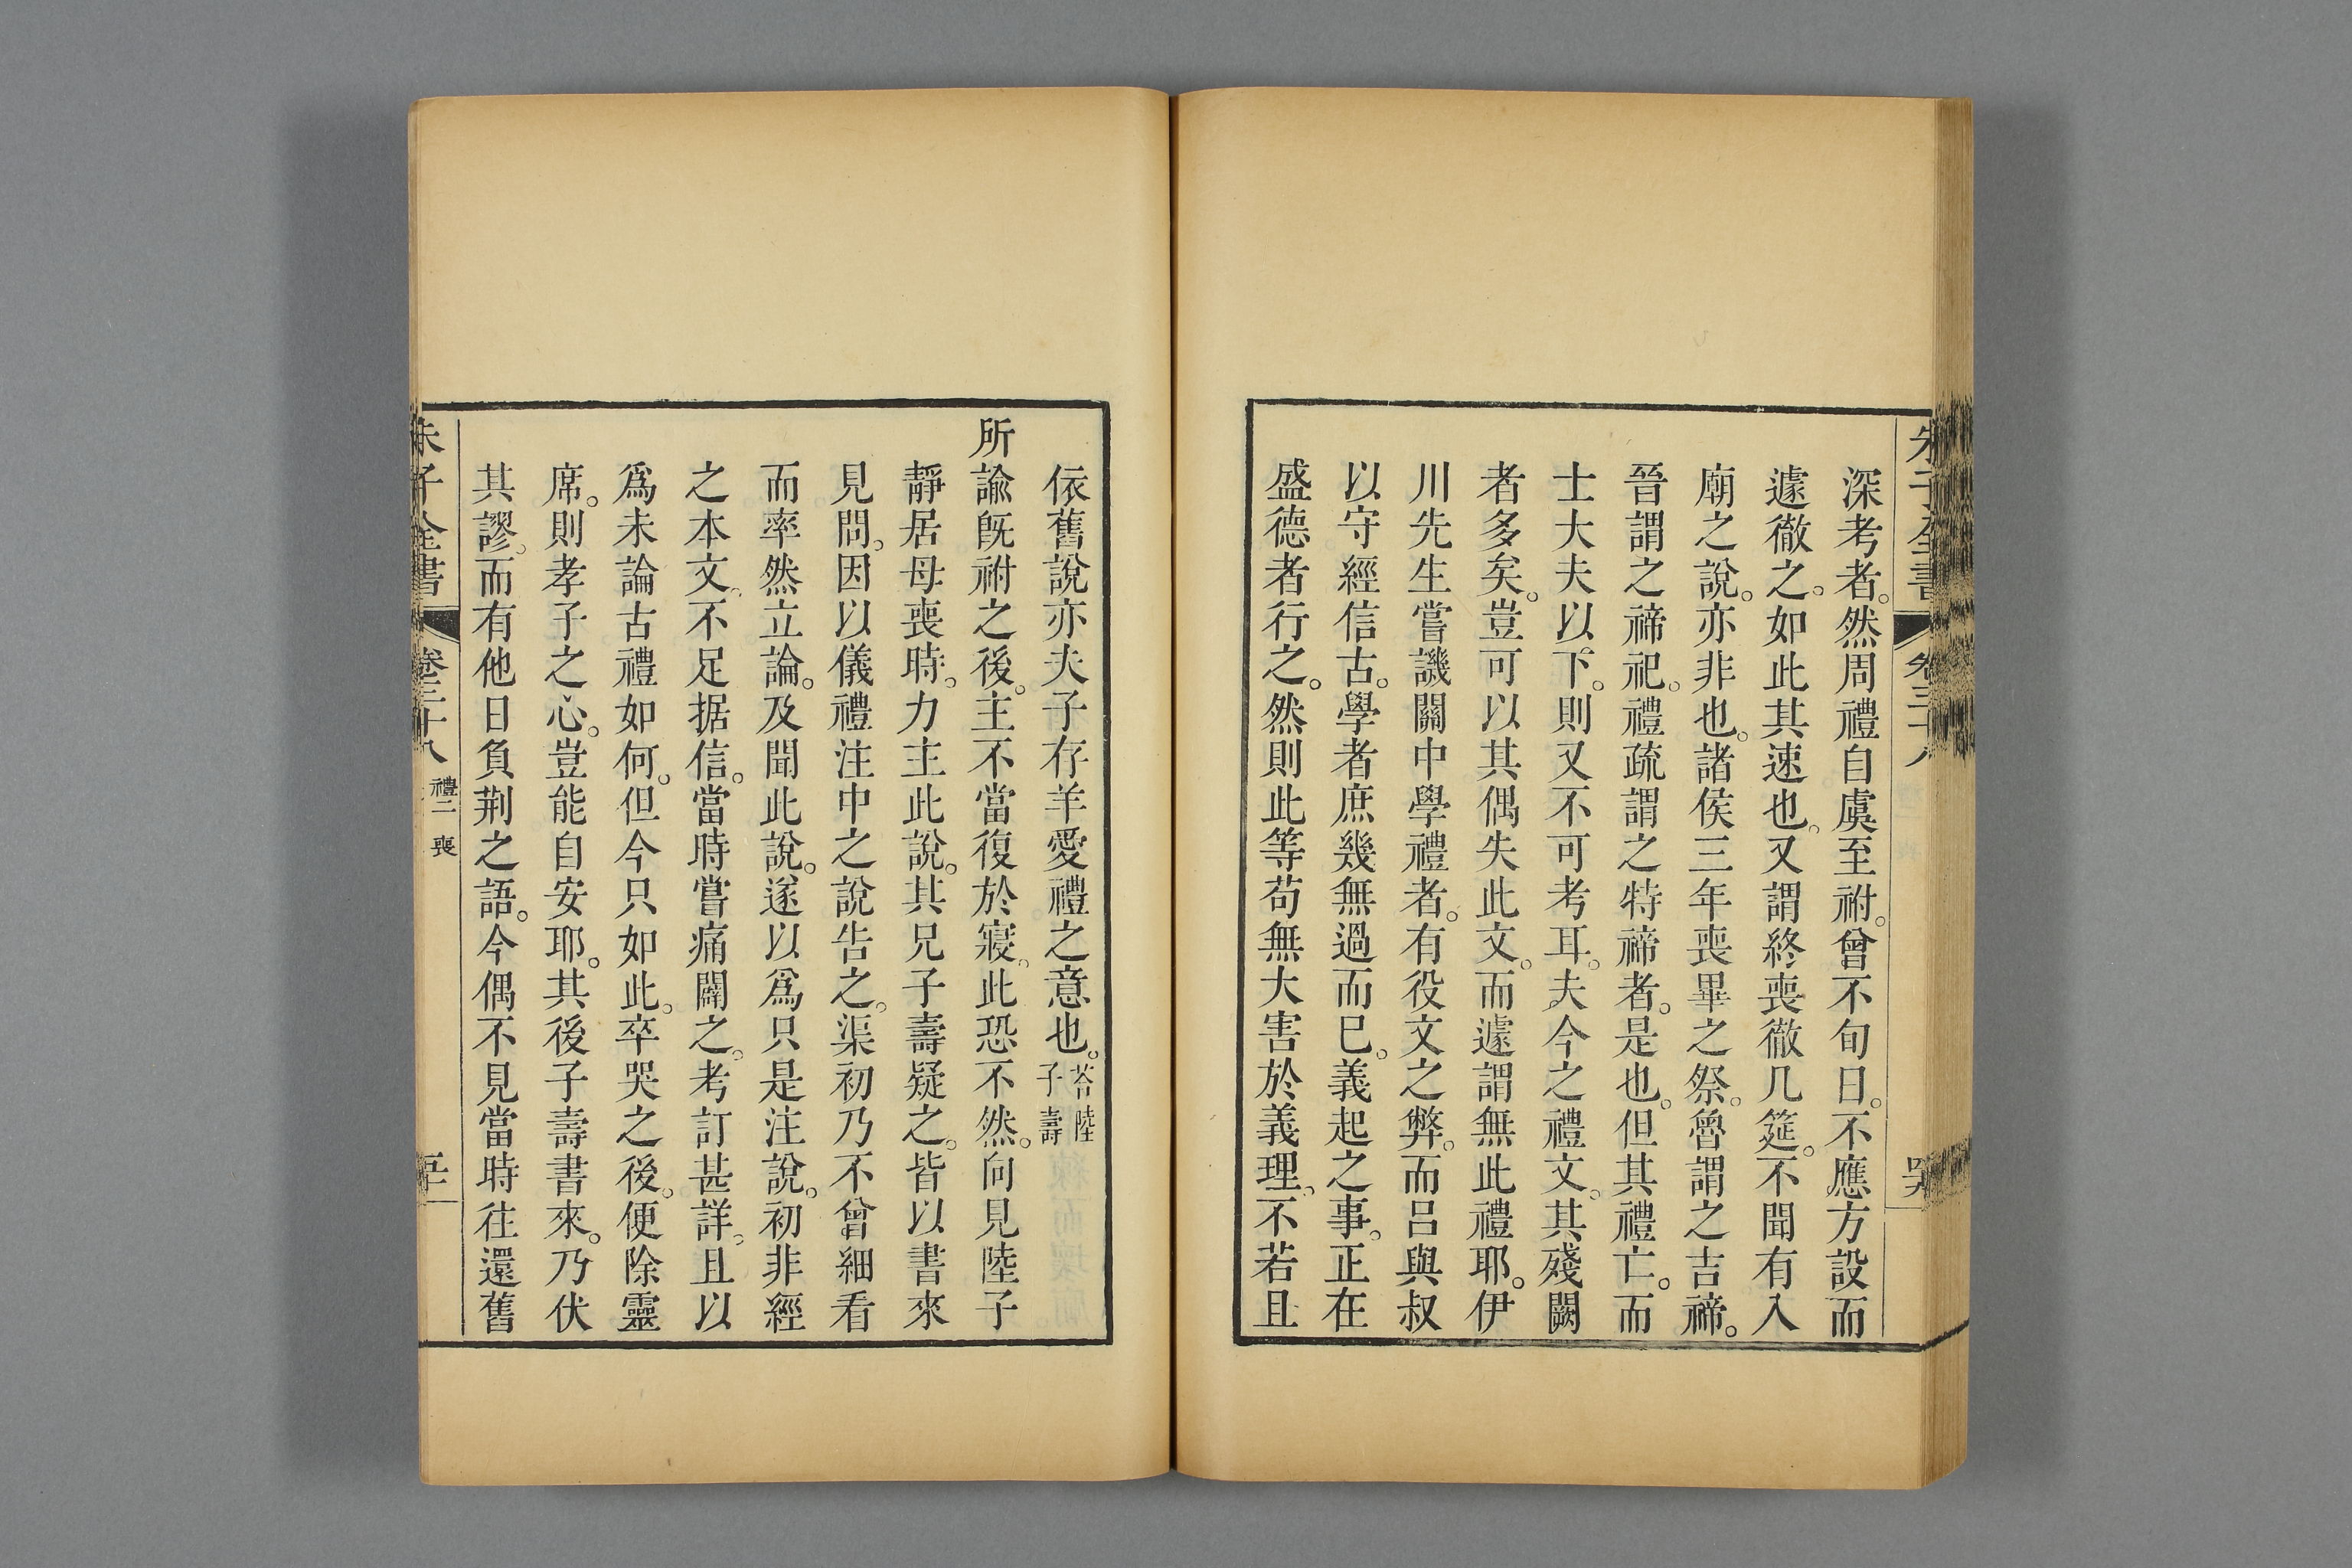 朱子全書 卷三十八
深考者。然周禮自虞至祔。曾不旬日。不應方設而
遽徹之。如此其速也。又謂終喪徹几筵。不聞有入
廟之說。亦非也。諸侯三年喪畢之祭。魯謂之吉禘。
晉謂之禘祀。禮疏謂之特禘者。是也。但其禮亡。而
士大夫以下。則又不可考耳。夫今之禮文。其殘闕
者多矣。豈可以其偶失此文。而遽謂無此禮耶。伊
川先生嘗譏關中學禮者。有役文之弊。而呂與叔
以守經信古。學者庶幾無過而已。義起之事。正在
盛德者行之。然則此等苟無大害於義理。不若且
依舊說亦夫子存羊愛禮之意也。荅陸子壽
所諭旣祔之後。主不當復於寢。此恐不然。向見陸子
靜居母喪時。力主此說。其兄子壽疑之。皆以書來
見問。因以儀禮注中之說告之。渠初乃不曾細看
而率然立論。及聞此說。遂以爲只是注說。初非經
之本文。不足据信。當時嘗痛闢之。考訂甚詳。且以
爲未論古禮如何。但今只如此。卒哭之後。便除靈
席。則孝子之心。豈能自安耶。其後子壽書來。乃伏
其謬。而有他日負荆之語。今偶不見當時往還舊
朱子全書 卷三十八 禮二 喪